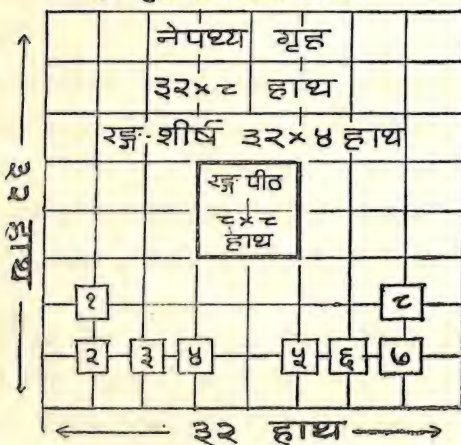 नेपथ्य गृह
३२×८ हाथ
रङ्ग-शीर्ष ३२×४ हाथ
रङ्ग पीठ
८×८
हाथ
३२ हाथ
१ ८
२ ३ ४ ५ ६ ७
३२ हाथ